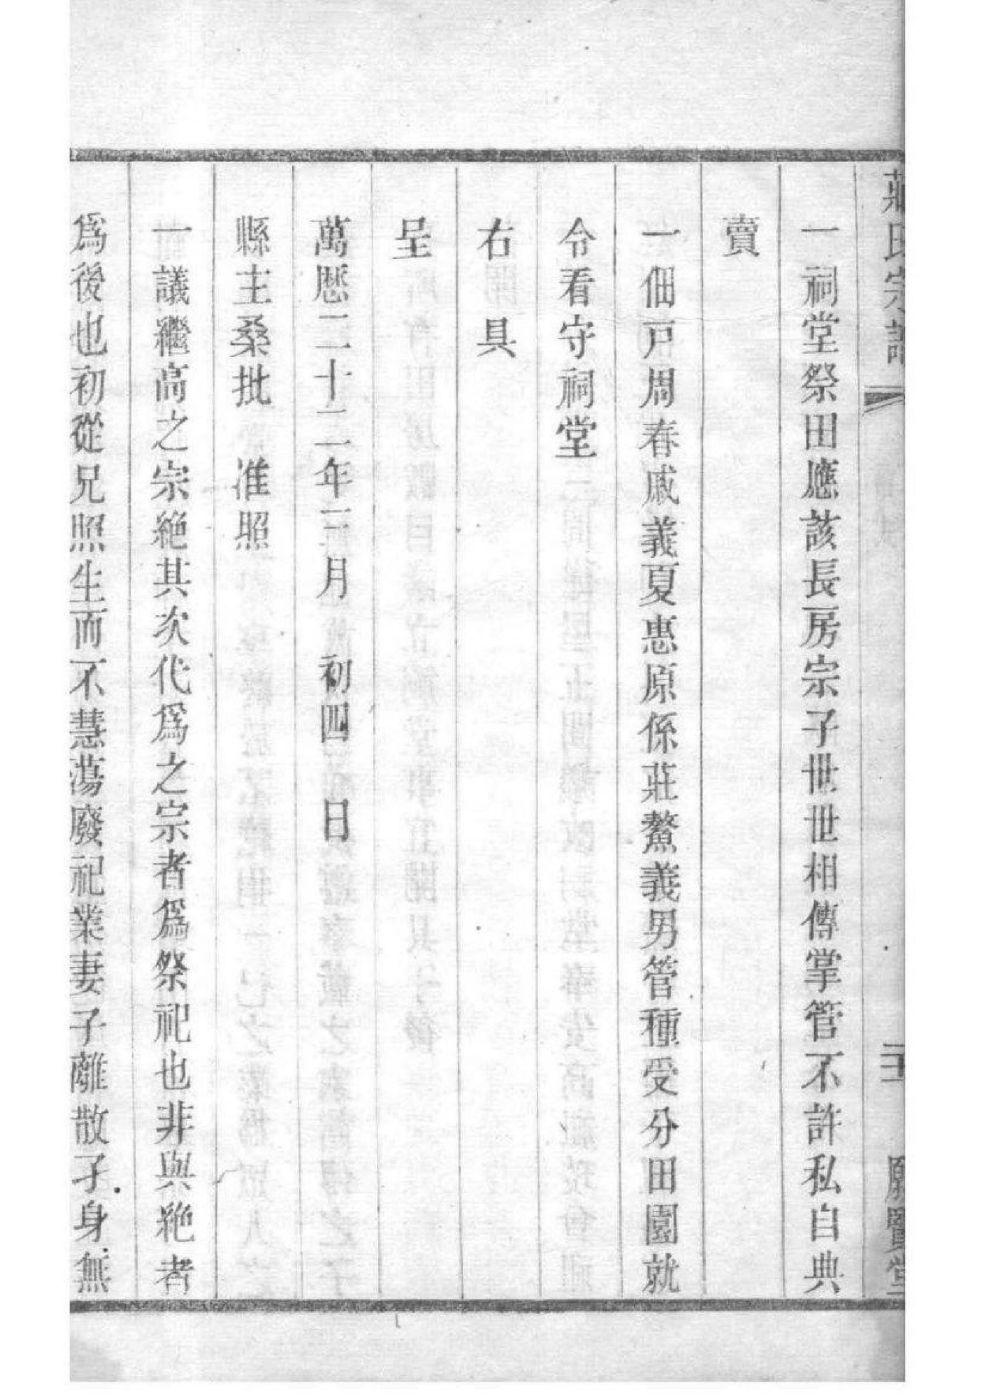 莊氏宗譜
一祠堂祭田應該長房宗子世世相傳掌管不許私自典
賣
一佃戸周春戚義夏惠原係莊鰲義男管種受分田園就
令看守祠堂
右具
呈
萬曆二十二年三月 初四 日
縣主桑批 准照
一議繼高之宗絶其次代爲之宗者爲祭祀也非與絶者
爲後也初從兄照生而不慧蕩廢祀業妻子離散孑身無